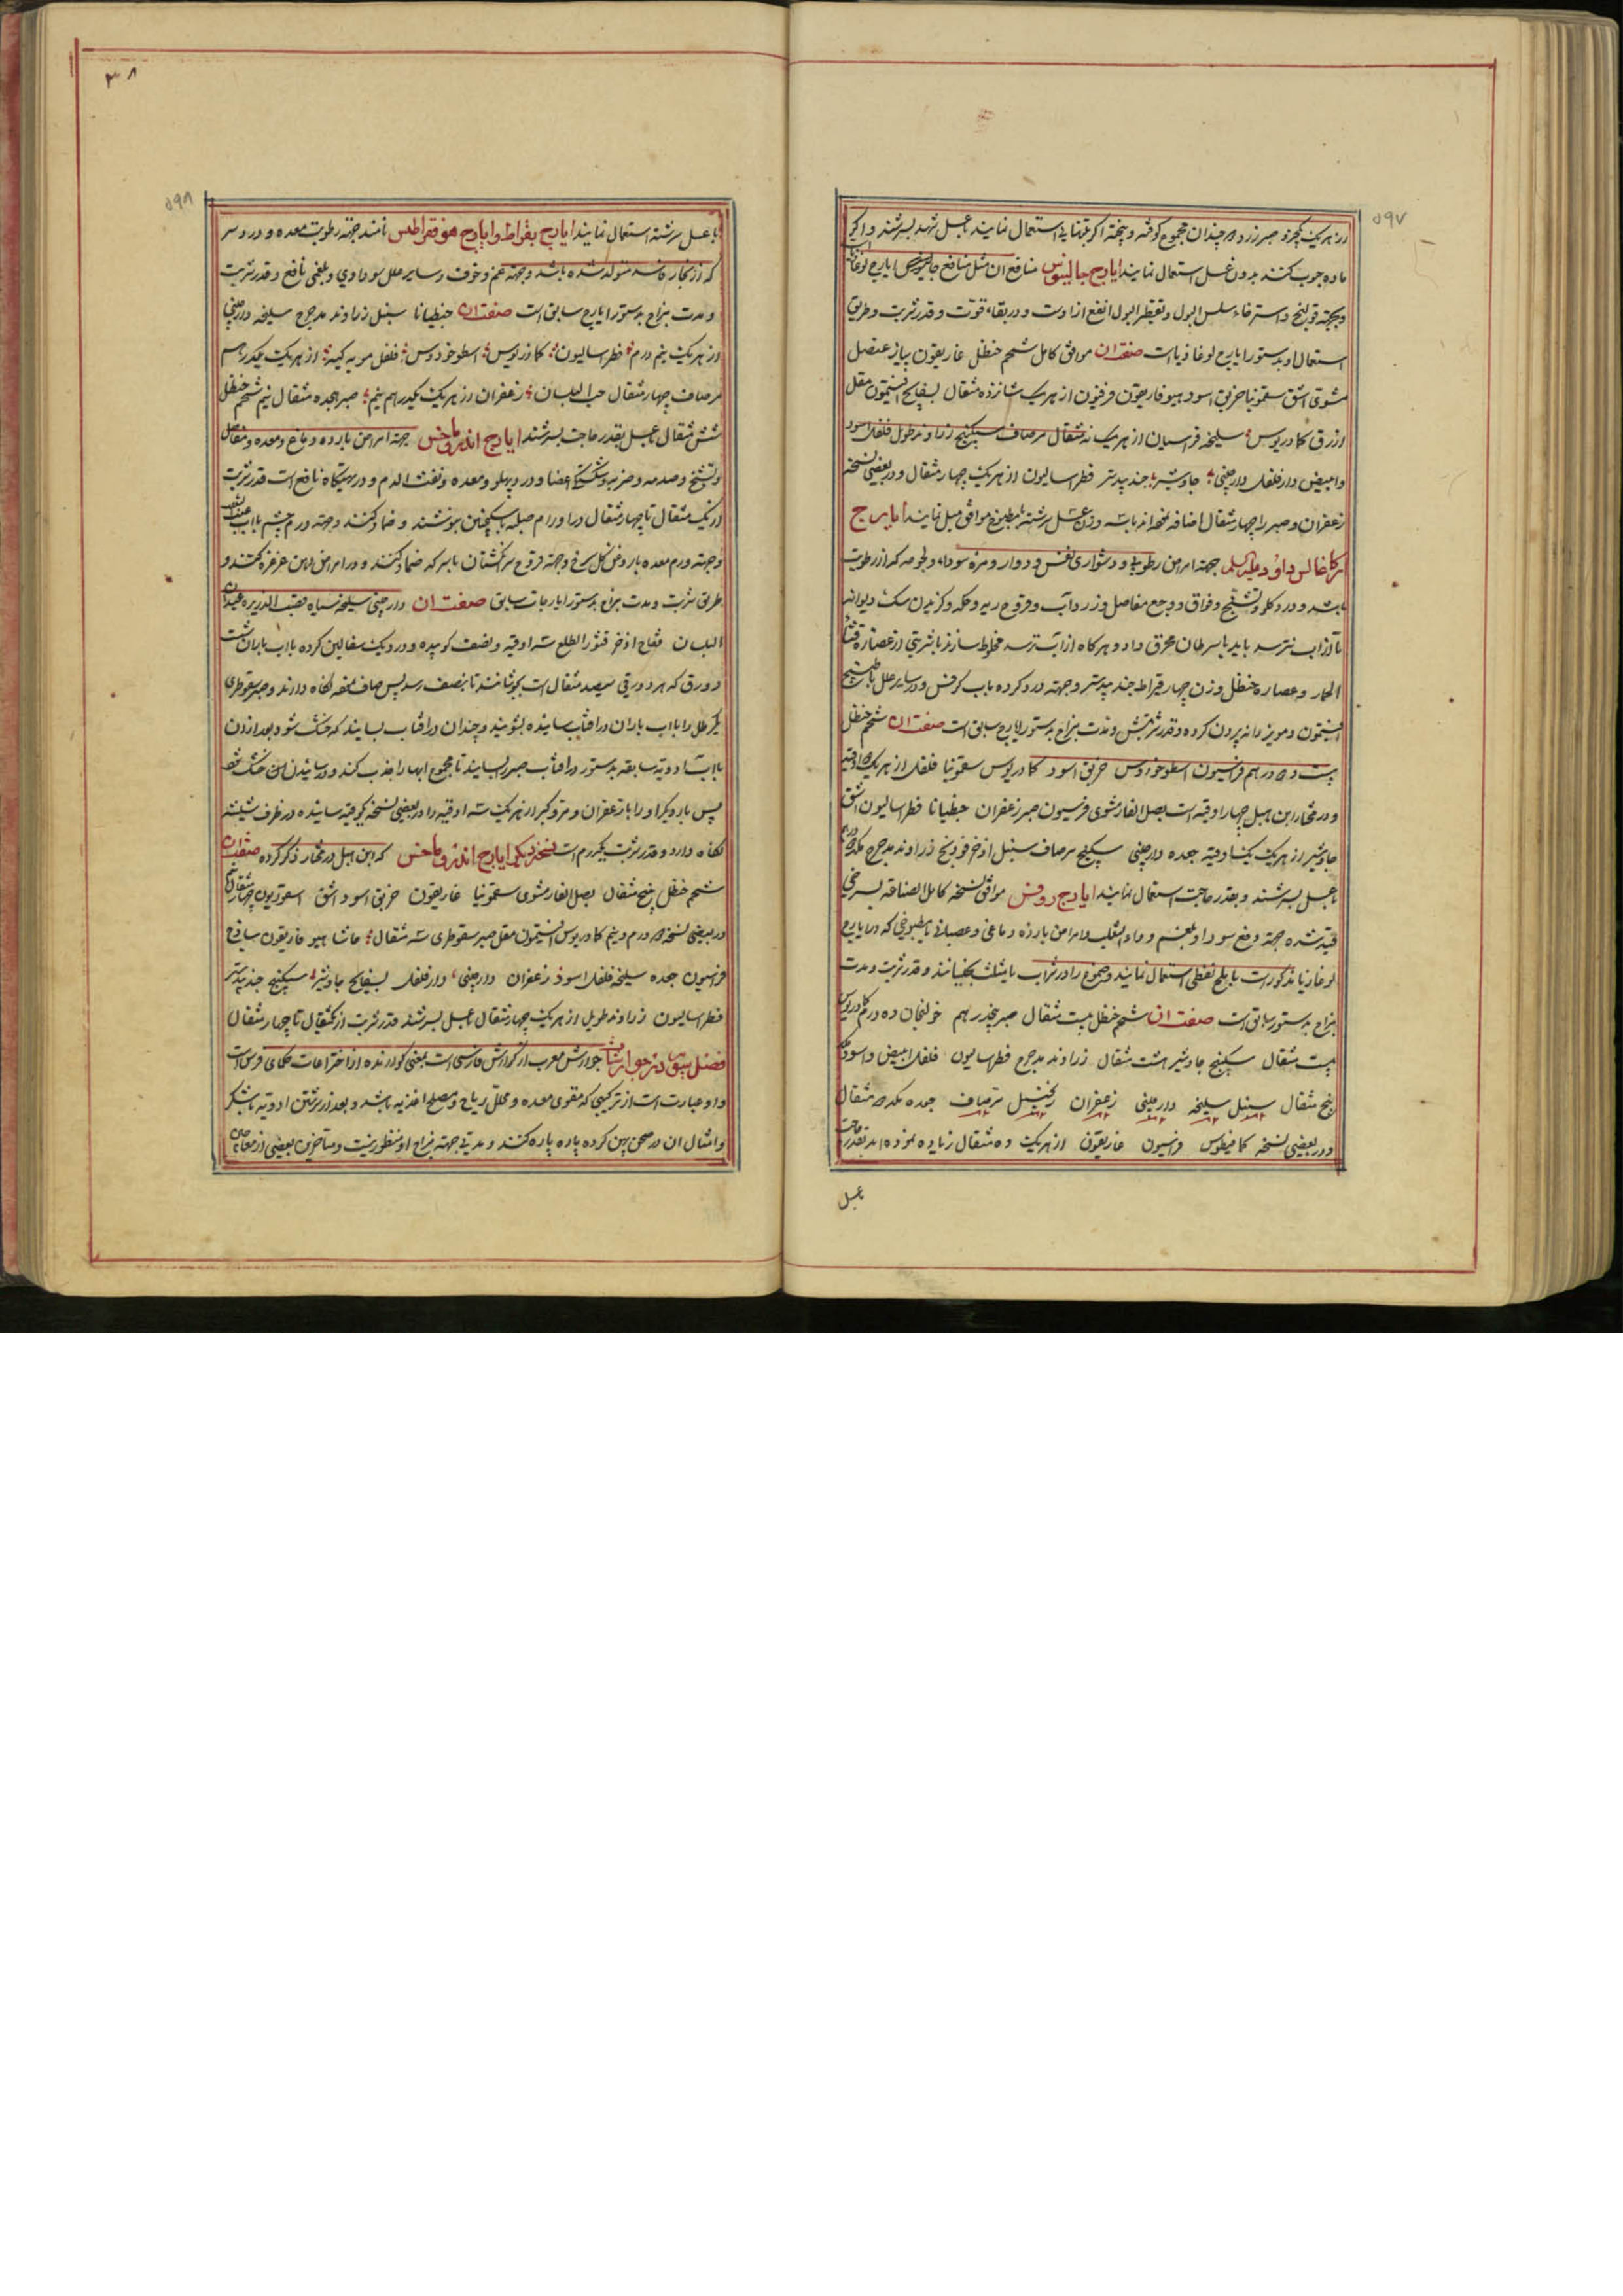 ۵۹۷
از هریک بجزو صبر زرد ده چندان مجموع کوفته و بیخته اکر بتنهایه استعمال نمایند بعسل شهد بسرشند و اکر
ماده جوب کنند بدون عسل استعمال نمایند ایارج جالینوس منافع ان مثل منافع ایارج لوغا
وبجهة قولنج و استرخاء سلس البول و تقطیر البول انفع از اوست و در بقاء قوت و قدر شربت و طریق
استعمال او بدستور ایارج لوغاذیا است صفت ان موافق کامل شحم حنظل غاریقون پیاز عنصل
مشوی اشق سقمونیا خربق اسود هیوفاریقون فرفیون از هریک شانزده مثقال بسفایج افتیمون مقل
ازرق کمادریوس سلیخه فراسیان از هریک نه مثقال مرصاف سکبینج زراوند طویل فلفل اسود
وابیض دارفلفل دارچینی جاوشیر جندبیدستر فطراسالیون از هریک چهار مثقال و در بعضی نسخه
زعفران و صبر را چهار مثقال اضافه نموده اند باسه وزن عسل سرشته بمطبوخ موافق میل نمایند ایارج
ارکاغالس داود علیه السلم جهة امراض رطوبی و دشواری نفس و دوار و مره سوداء و لجومه که از رطوبت
باشد و درد کلو و تشنج و فواق و وجع مفاصل و زرداب و قروح ریه و حکه و کزیدن سک دیوانه
تا از اب نترسد باید با سرطان محرق داد و هرکاه از آب ترسد مخلوط سازند با شربتی از عصاره قثاء
الحمار و عصاره حنظل وزن چهار قیراط جندبیدستر و جهة درد کرده باب کرفس و در سایر علل با طبیخ
افتیمون و مویز دانه بیرون کرده و قدر شربتش و مدت مزاج بدستور ایارج سابق است صفت ان شحم حنظل
بیست درهم فراسیون اسطوخودوس خربق اسود کمادریوس سقمونیا فلفل از هریک ده اوقیه
و در مختار ابن هبل چهار اوقیه است بصل الفار مشوی فرسیون صبر زعفران جنطیانا فطراسالیون اشق
جاوشیر از هریک یک اوقیه جعده دارچینی سکبینج مرصاف سنبل اذخر فودنج زراوند مدحرج
بعسل بسرشند و بقدر حاجت استعمال نمایند ایارج روفس موافق نسخه کامل الصناعه
قید شده جهة دفع سودا و بلغم و داء الثعلب و امراض بارده دماغی و عصبانی با مطبوخی که در ایارج
لوغاذیا مذکور است با ملح نفطی استعمال نمایند و صموغ را در شراب یا مثلث بخیسانند و قدر شربت و مدت
مزاج بدستور سابق است صفت ان شحم حنظل بیست مثقال صبر پنجدرهم خولنجان ده درم کمادریوس
بیست مثقال سکبینج جاوشیر هشت مثقال زراوند مدحرج فطراسالیون فلفل ابیض و اسود
پنج مثقال سنبل سلیخه دارچینی زعفران زنجبیل مرصاف جعده
و در بعضی نسخه کمافیطوس فراسیون غاریقون از هریک ده مثقال زیاده نموده اند بقدر حاجت
بعسل
۳۸
۵۹۸
با عسل سرشته استعمال نمایند ایارج بقراط و ایارج هوفقراطیس نامند جهة رطوبت معده و درد سر
که از بخار متولد شده باشد و جهة غم و خوف و سایر علل سوداوی و بلغمی نافع و قدر شربت
و مدت مزاج بدستور ایارج سابق است صفت ان جنطیانا سنبل زراوند مدحرج سلیخه دارچینی
از هریک نیم درم فطراسالیون کمادریوس اسطوخودوس فلفل مویه از هریک یکدرهم
مرصاف چهار مثقال حب البلسان زعفران از هریک یکدرهم نیم صبر هجده مثقال نیم شحم حنظل
شش مثقال بعسل بقدر حاجت بسرشند ایارج اندروماخس جهة امراض بارده دماغ و معده و مفاصل
و تشنج و صدمه و ضربه و شکستگی اعضا و درد پهلو و معده و نفث الدم و درد تهیکاه نافع است قدر شربت
از یک مثقال تا چهار مثقال در اورام صلبه با سکنجبین بنوشند و ضماد کنند و جهة درم چشم باب عنب الثعلب
و جهة ورم معده با روغن کل سرخ و جهة قروح سر انکشتان با سرکه ضماد کنند و در امراض دهن غرغره کنند و
طریق شربت و مدت مزاج بدستور ایارجات سابق صفت ان دارچینی سلیخه سیاه قصب الذریره عیدان
البلسان فقاح اذخر قشور الطلع سه اوقیه و نصف کوبیده و در دیک سفالین کرده با اب باران شش
دورق که هر دورقی سیصد مثقال است بجوشانند تا بنصف رسد پس صاف نموده نکاه دارند و صبر سقوطری
یکرطل را با اب باران در افتاب ساییده بشویند و چندان در افتاب بسایند که خشک شود بعد از ان
با اب ادویه سابقه بدستور در افتاب صبر را بسایند تا مجموع ابها را جذب کند و در ساییدن اخر خشک شود
پس بار دیکر او را با زعفران و مر و کبر از هریک سه اوقیه و در بعضی نسخه یکوقیه ساییده در ظرف شیشه
نکاه دارد و قدر شربت یکدرم است نسخه دیکر ایارج اندروماخس که ابن هبل در مختار ذکر کرده صفت ان
شحم حنظل پنج مثقال بصل الفار مشوی سقمونیا غاریقون خربق اسود اشق اسقوردیون چهار مثقال
در بعضی نسخه ده درم و نیم کمادریوس افتیمون مقل صبر سقوطری سه مثقال حاشا هیوفاریقون ساذج
فراسیون جعده سلیخه فلفل اسود زعفران دارچینی دارفلفل بسفایج جاوشیر سکبینج جندبیدستر
فطراسالیون زراوند طویل از هریک چهار مثقال بعسل بسرشند قدر شربت از یکمثقال تا چهار مثقال
فصل سیوم در جوارشات جوارش معرب از کوارش فارسی است بمعنی کوارنده از اختراعات حکمای فرس است
و او عبارت است از ترکیبی که مقوی معده و محلل ریاح و مصلح اغذیه باشد و بعد از سرشتن ادویه با شکر
و امثال ان در صحن پهن کرده پاره پاره کنند و مدتی جهة مزاج او منظور نیست و متاخرین بعضی از معاجین